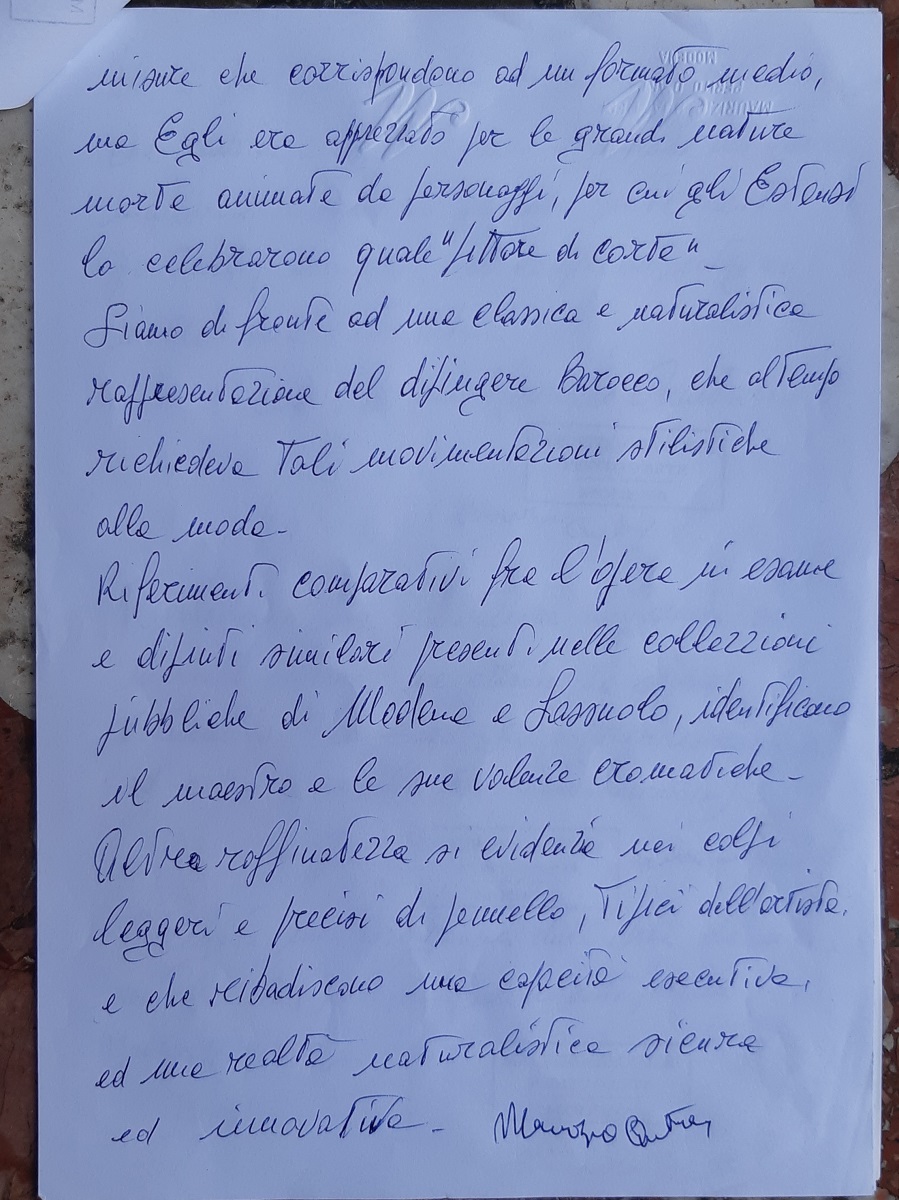 misure che corrispondono ad un formato medio,
ma Egli era apprezzato per le grandi nature
morte animate da personaggi, per cui gli Estensi
lo celebrarono quale "pittore di corte"_
Siamo di fronte ad una classica e naturalistica
raffresentazione del dipingere Barocco, che al tempo
richiedeva Tali movimentazioni stilistiche
alla moda-
Riferimenti comparativi fra l'opera in esame
e dipinti similari presenti nelle collezzioni
pubbliche di Modena e Sassuolo, identificano
il maestro e le sue valenze cromatiche-
Altra raffinatezza si evidenzia nei colpi
leggeri e precisi di pennello, Tipici dell'artista,
e che ribadiscono una capacità esecutiva,
ed una realtà naturalistica sicura
ed innovativa-
MODENA